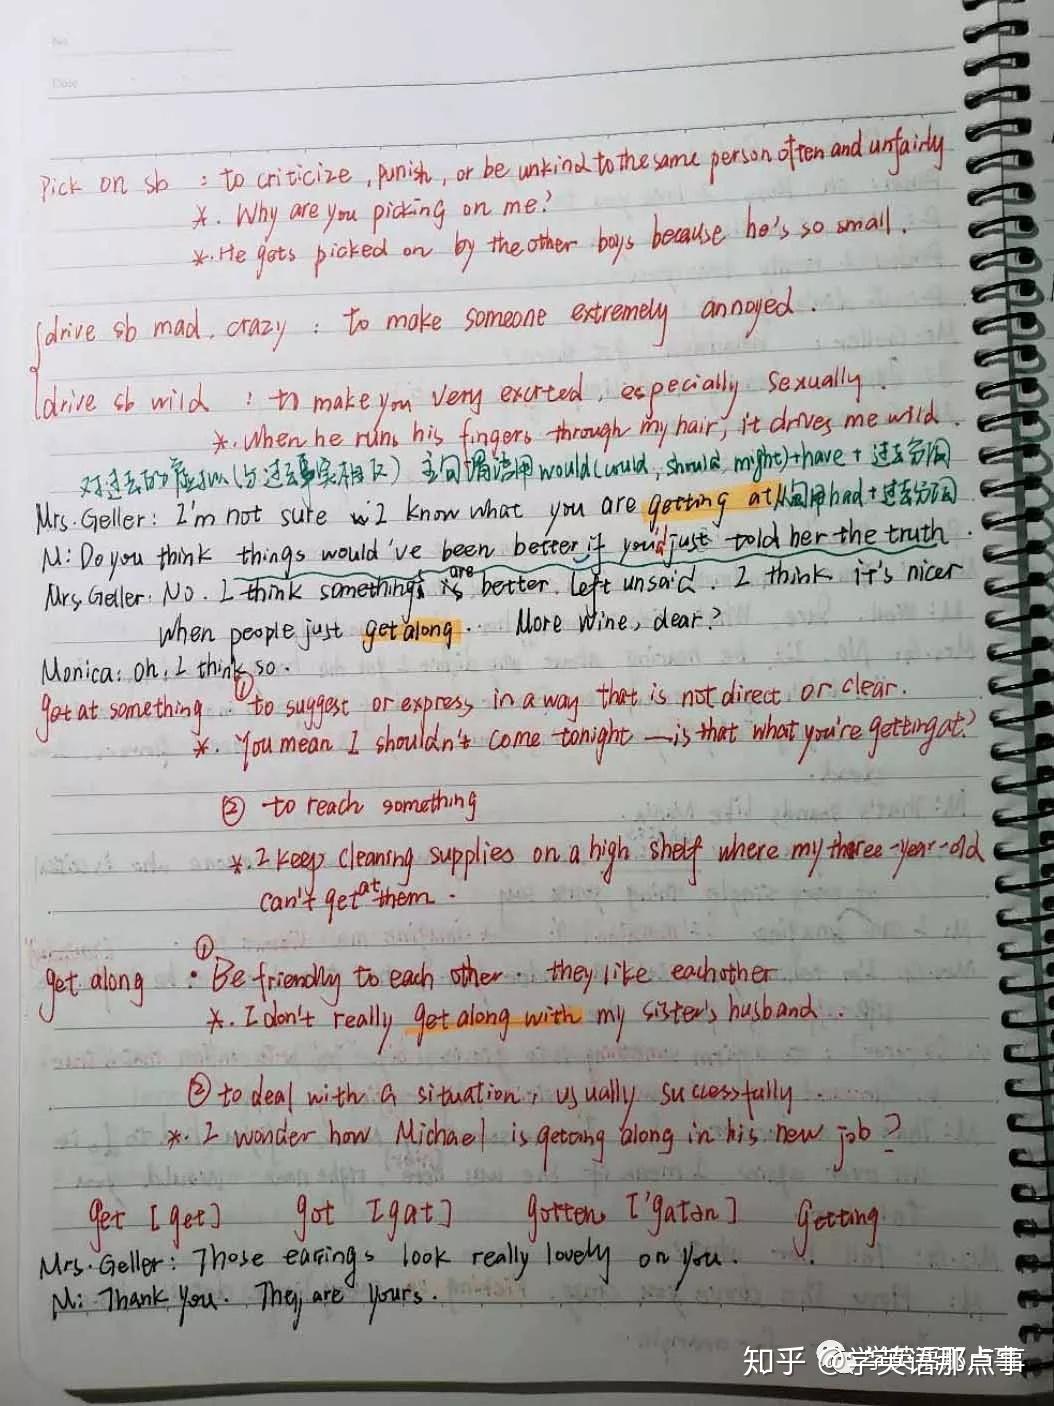 No
Date
Pick on sb : to criticize, punish, or be unkind to the same person often and unfairly
*. Why are you picking on me?
*. He gets picked on by the other boys because he's so small.
drive sb mad. crazy : to make someone extremely annoyed.
drive sb wild : to make you very excited, especially sexually.
*. When he runs his fingers through my hair, it drives me wild.
对过去的虚拟(与过去事实相反) 主句谓语用would(could, should, might)+have+过去分词
从句用had+过去分词
Mrs. Geller: I'm not sure I know what you are getting at
M: Do you think things would've been better if you'd just told her the truth.
Mrs. Geller: No. I think somethings are better left unsaid. I think it's nicer
when people just get along.. More wine, dear?
Monica: oh, I think so.
get at something : ① to suggest or express in a way that is not direct or clear.
*. You mean I shouldn't come tonight — is that what you're getting at?
② to reach something
*. I keep cleaning supplies on a high shelf where my three-year-old
can't get at them.
get along : ① Be friendly to each other. they like eachother
*. I don't really get along with my sister's husband.
② to deal with a situation, usually successfully.
*. I wonder how Michael is getting along in his new job?
get [get] got [gat] gotten ['gatən] getting
Mrs. Geller: Those earrings look really lovely on you.
M: Thank you. They are yours.
知乎 @学英语那点事